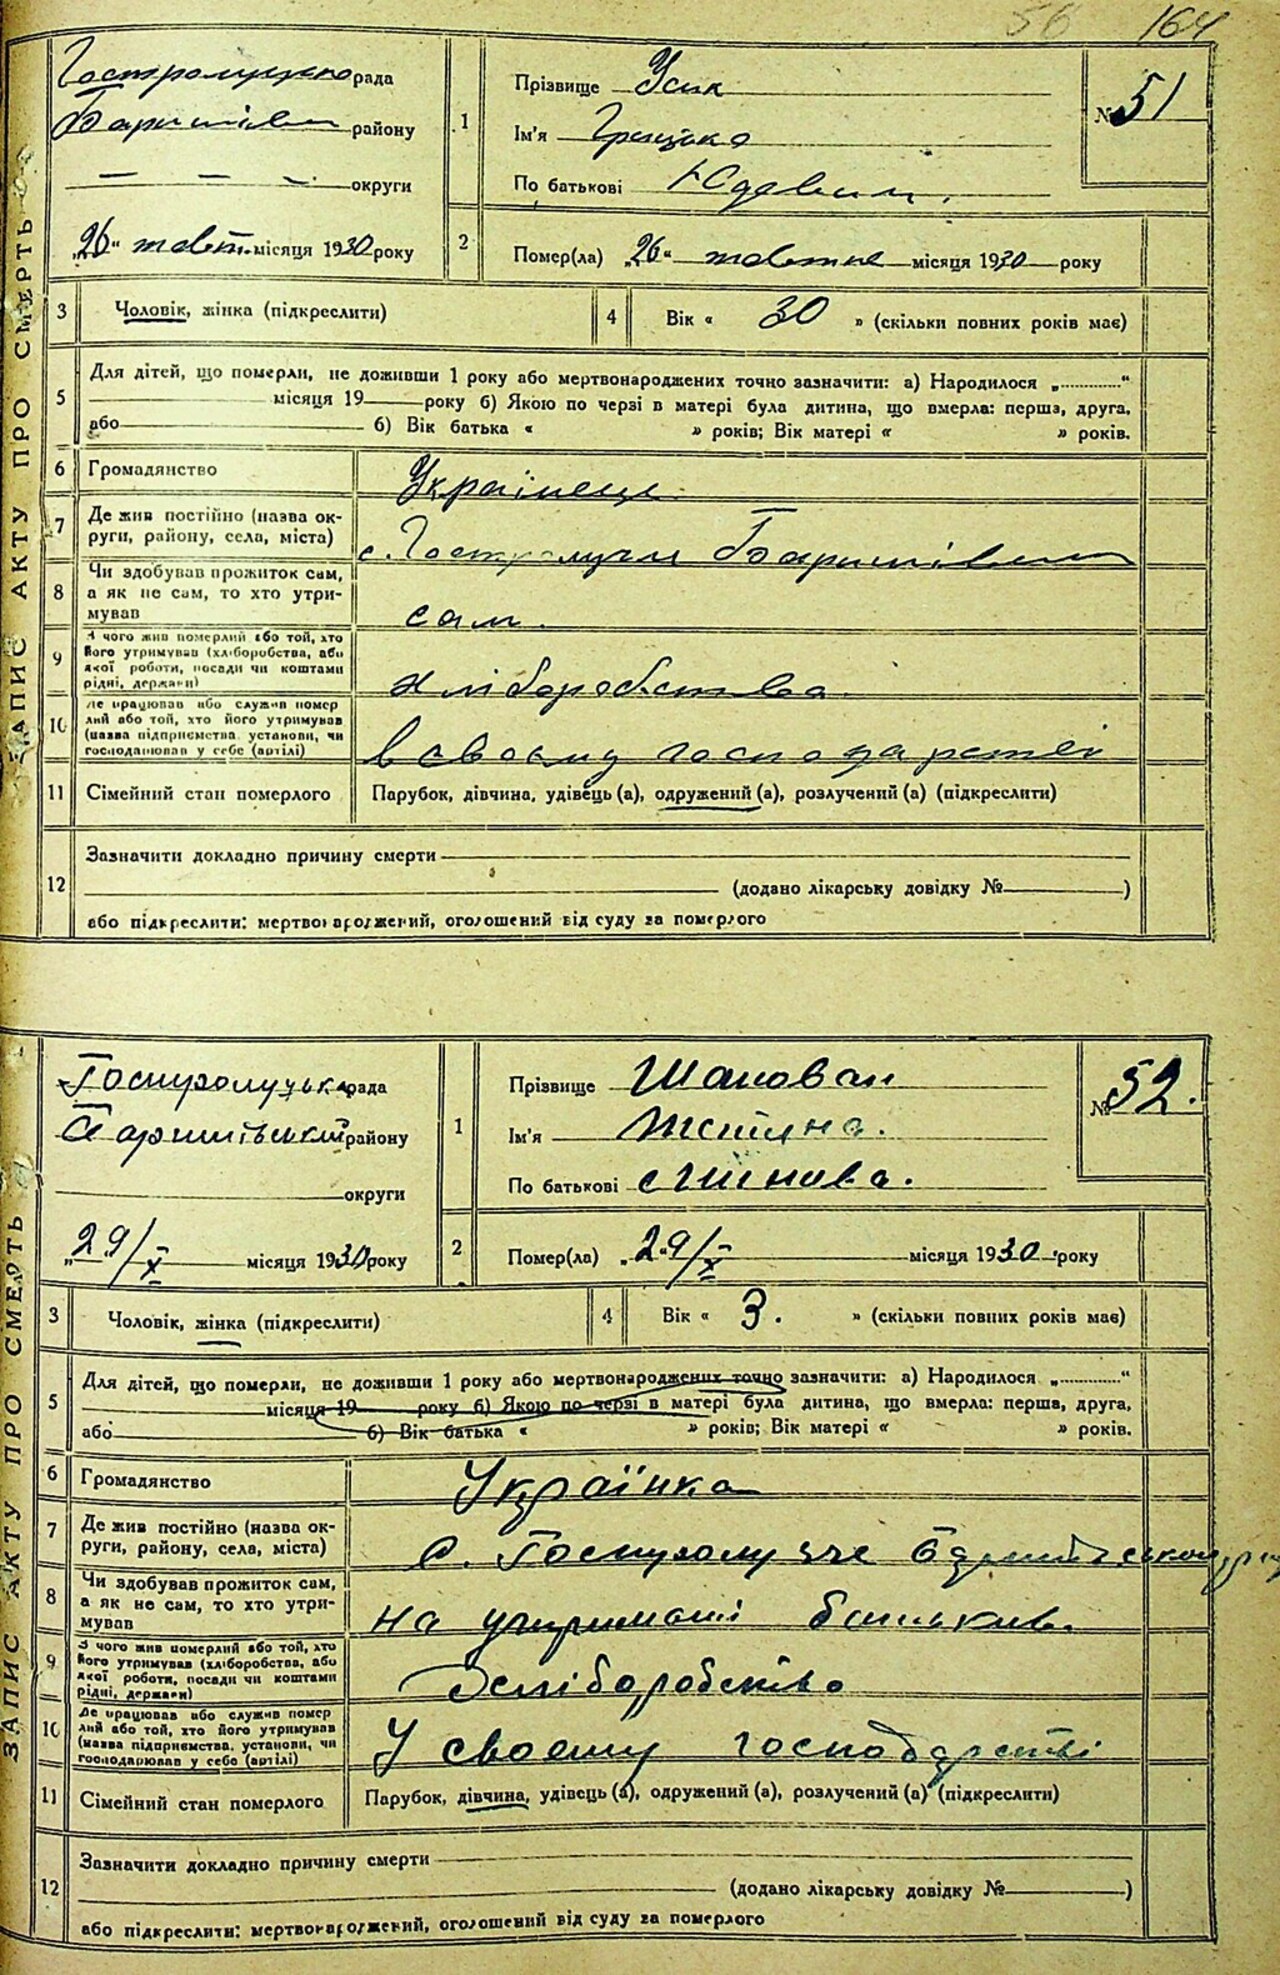 56 164
ЗАПИС АКТУ ПРО СМЕРТЬ
Гостролуцько рада
Баришівськ району
округи
„26“ жовт. місяця 1930 року
1
Прізвище Усик
Ім'я Грицько
По батькові Юдович.
№ 51
2
Помер(ла) „26“ жовтня місяця 1930 року
3 Чоловік, жінка (підкреслити)
4 Вік « 30 » (скільки повних років має)
5
Для дітей, що померли, не доживши 1 року або мертвонароджених точно зазначити: а) Народилося „............“
місяця 19 року б) Якою по черзі в матері була дитина, що вмерла: перша, друга,
або б) Вік батька « » років; Вік матері « » років.
6 Громадянство Українець
7 Де жив постійно (назва ок-
руги, району, села, міста)
с. Гостролуччя Баришівськ
8 Чи здобував прожиток сам,
а як не сам, то хто утри-
мував
сам.
9 З чого жив померлий або той, хто
його утримував (хліборобства, або
якої роботи, посади чи коштами
рідні, держави)
хліборобства
10 Де працював або служив помер
лий або той, хто його утримував
(назва підприємства, установи, чи
господарював у себе (артілі)
в своєму господарстві
11 Сімейний стан померлого Парубок, дівчина, удівець (а), одружений (а), розлучений (а) (підкреслити)
12
Зазначити докладно причину смерти
(додано лікарську довідку № )
або підкреслити: мертвонароджений, оголошений від суду за померлого
ЗАПИС АКТУ ПРО СМЕРТЬ
Гостролуцька рада
Баришівський району
округи
„29/X місяця 1930 року
1
Прізвище Шаповал
Ім'я Устина.
По батькові
№ 52.
2
Помер(ла) „29/X місяця 1930 року
3 Чоловік, жінка (підкреслити)
4 Вік « 3. » (скільки повних років має)
5
Для дітей, що померли, не доживши 1 року або мертвонароджених точно зазначити: а) Народилося „............“
місяця 19 року б) Якою по черзі в матері була дитина, що вмерла: перша, друга,
або б) Вік батька « » років; Вік матері « » років.
6 Громадянство Українка
7 Де жив постійно (назва ок-
руги, району, села, міста)
С. Гостролучче Баришівського
8 Чи здобував прожиток сам,
а як не сам, то хто утри-
мував
на утримані батьків.
9 З чого жив померлий або той, хто
його утримував (хліборобства, або
якої роботи, посади чи коштами
рідні, держави)
Хліборобство
10 Де працював або служив помер
лий або той, хто його утримував
(назва підприємства, установи, чи
господарював у себе (артілі)
У своєму господарстві
11 Сімейний стан померлого Парубок, дівчина, удівець (а), одружений (а), розлучений (а) (підкреслити)
12
Зазначити докладно причину смерти
(додано лікарську довідку № )
або підкреслити: мертвонароджений, оголошений від суду за померлого